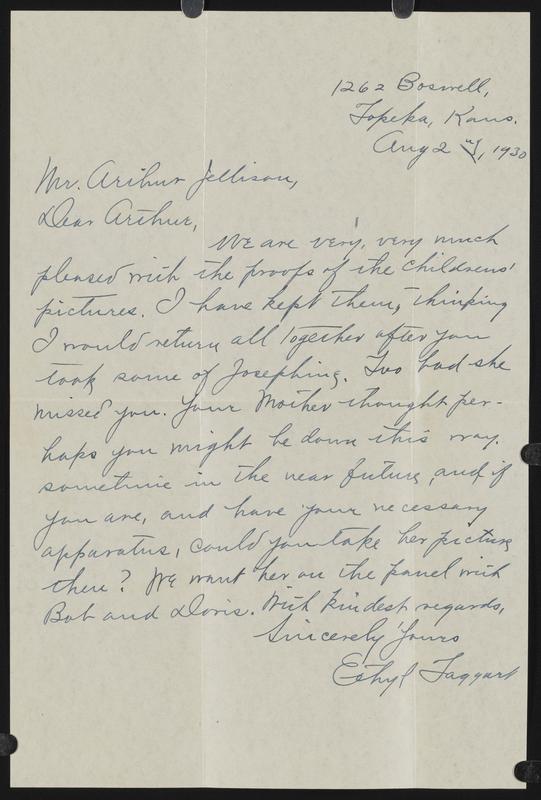 1262 Boswell,
Topeka, Kans.
Aug 2nd, 1930
Mr. Arthur Jellison,
Dear Arthur,
We are very, very much
pleased with the proofs of the childrens'
pictures. I have kept them, thinking
I would return all together after you
took some of Josephine. Too bad she
missed you. Your Mother thought per-
haps you might be down this way.
sometime in the near future, and if
you are, and have your necessary
apparatus, could you take her picture
then? We want her on the panel with
Bob and Doris. With kindest regards,
Sincerely Yours
Ethyl Taggart